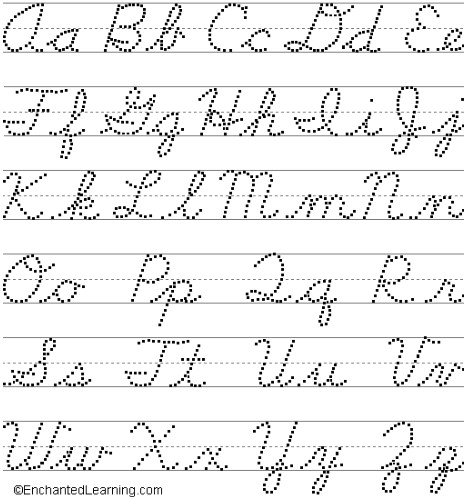 Aa Bb Cc Dd Ee
Ff Gg Hh Ii Jj
Kk Ll Mm Nn
Oo Pp Qq Rr
Ss Tt Uu Vv
Ww Xx Yy Zz
©EnchantedLearning.com